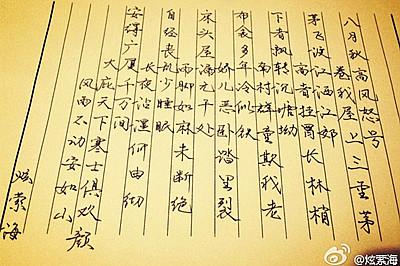 八月秋高风怒号
卷我屋上三重茅
茅飞渡江洒江郊
高者挂罥长林梢
下者飘转沉塘坳
南村群童欺我老
布衾多年冷似铁
娇儿恶卧踏里裂
床头屋漏无干处
雨脚如麻未断绝
自经丧乱少睡眠
长夜沾湿何由彻
安得广厦千万间
大庇天下寒士俱欢颜
风雨不动安如山
炫索海
@炫索海